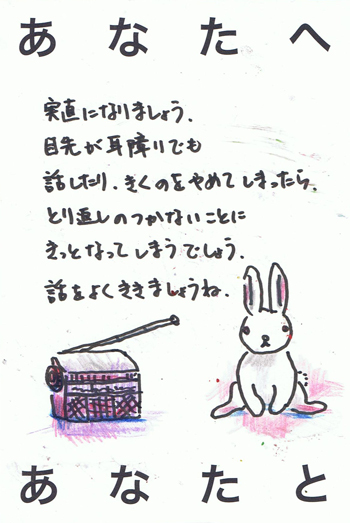 あなたへ
実直になりましょう。
目先が耳障りでも
話したり、きくのをやめてしまったら、
とり返しのつかないことに
きっとなってしまうでしょう。
話をよくききましょうね。
あなたと